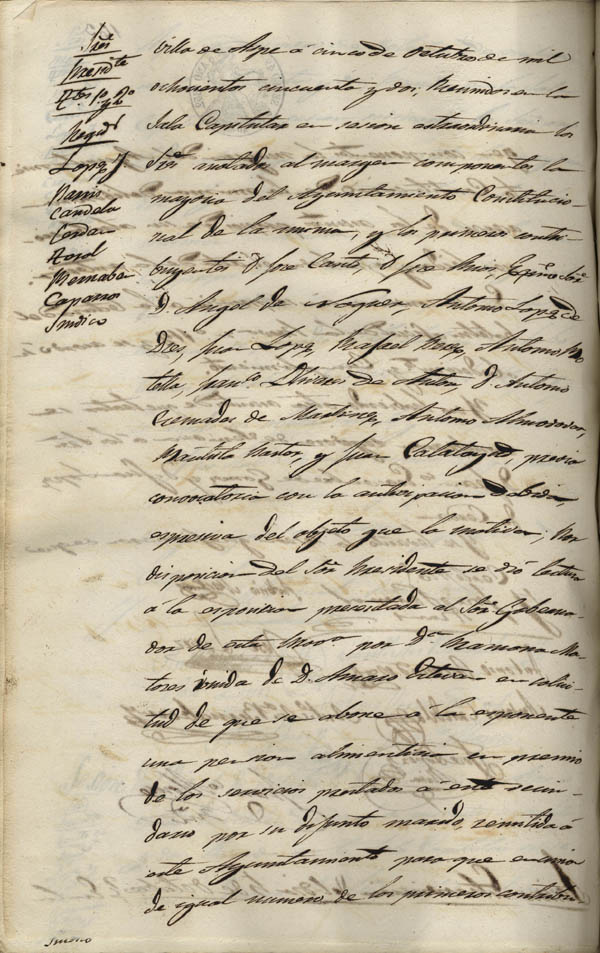 Sres
Presidte
Regid.s
Lopez
Candela
Cerdan
Bernabe
Caparros
Sindico
Villa de Aspe á cinco de Octubre de mil
ochocientos cincuenta y dos; Reunidos en la
Sala Capitular en sesion extraordinaria los
Sres notados al margen componentes la
mayoria del Ayuntamiento Constitucio-
nal de la misma, y los primeros contri-
buyentes D. Jose Canto, D. Jose
D. Angel de Antonio Lopez de
Dios, Juan Lopez, Rafael Antonio Bo
tella, Franco. de D. Antonio
Cremades de Martinez, Antonio Almodovar,
Bautista Pastor, y Juan Calatayud, previa
convocatoria con la anticipacion debida,
espresiva del objeto que la motiva; Por
disposicion del Sor. Presidente se dió lectura
á la esposicion presentada al Sor. Goberna-
dor de esta Prova. por Da. Ramona Ma-
tores viuda de D. Amaro Esteve en solici-
tud de que se abone á la esponente
una pension alimenticia en premio
de los servicios prestados á este vecin-
dario por su difunto marido, remitida á
este Ayuntamiento para que en union
de igual numero de los primeros contribu